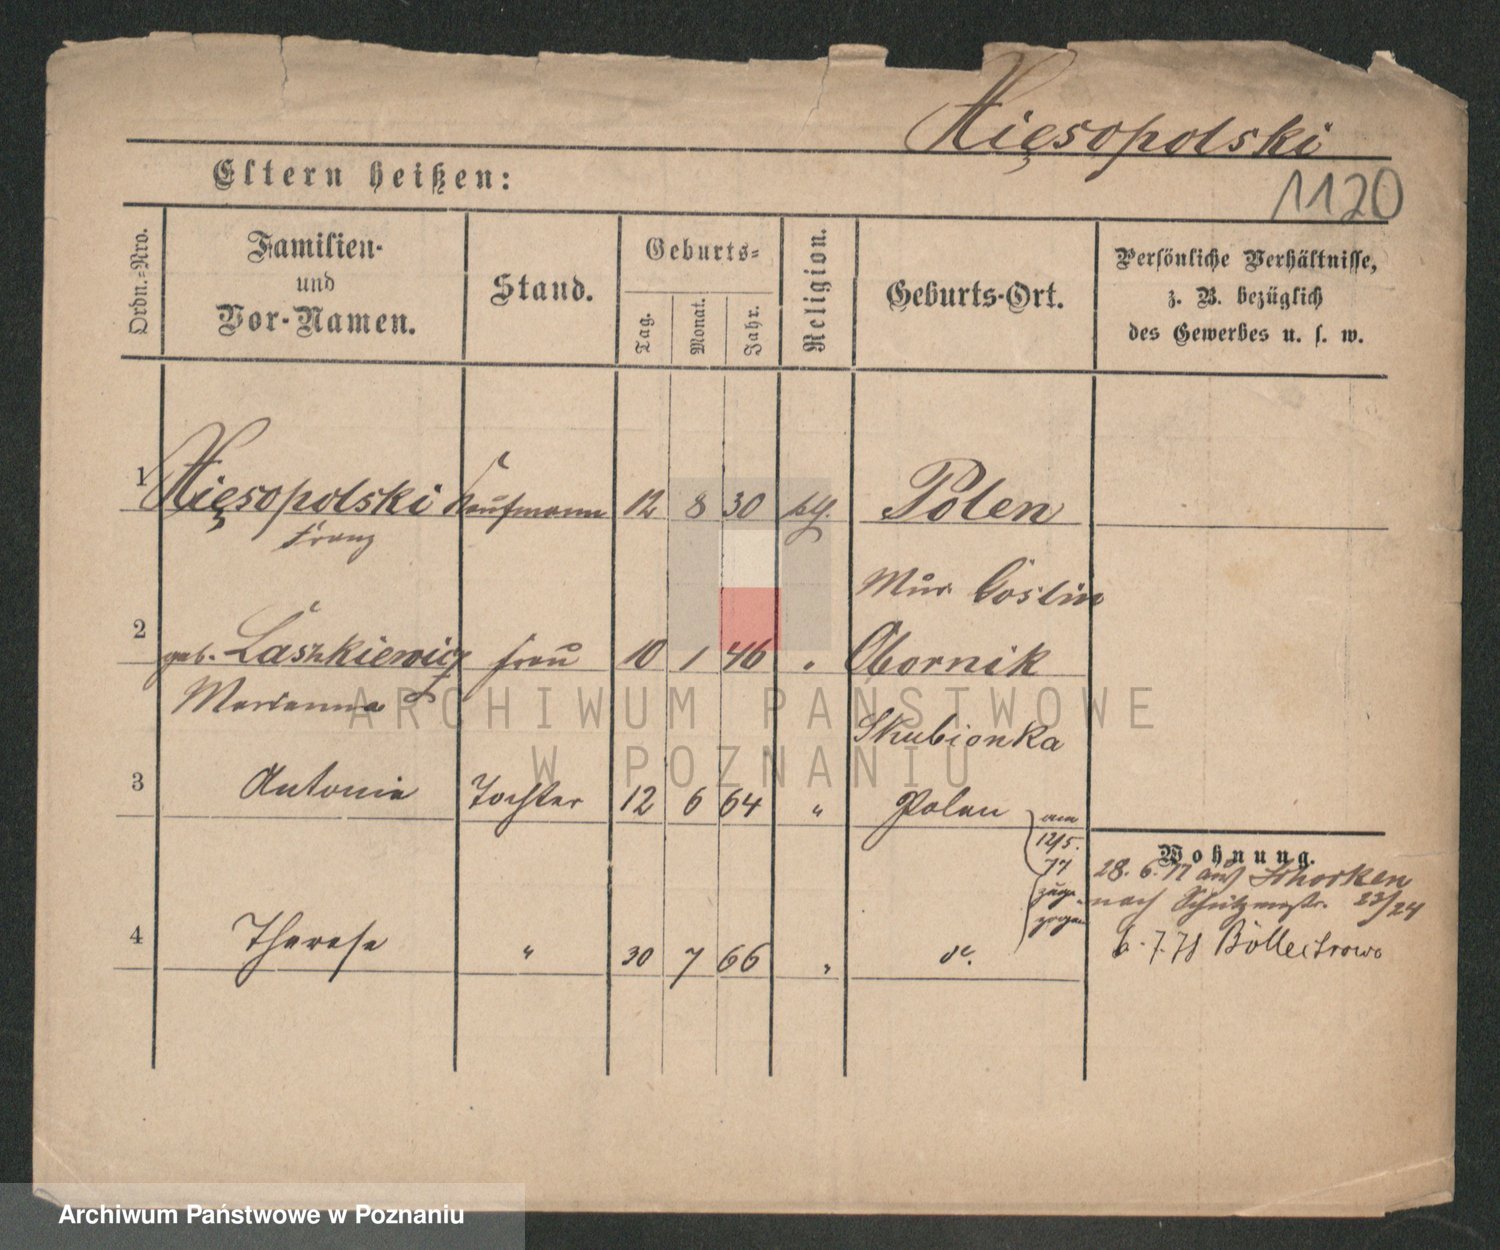 Hięsopolski
Eltern heißen:
1120
Ordn.-Nro.
Familien-
und
Vor-Namen.
Stand.
Geburts-
Tag.
Monat.
Jahr.
Religion.
Geburts-Ort.
Persönliche Verhältnisse,
z. B. bezüglich
des Gewerbes u. s. w.
1 Hięsopolski Kaufmann 12 8 30 kth. Polen
Franz
Mur Goslin
2 geb. Laszkiewicz Frau 10 1 46 " Obornik
Marianna
Skubionka
3 Antonie Tochter 12 6 64 " Polen
am
12/5.
77
zuge-
zogen
Wohnung.
28. 6. 77 aus
nach Schützenstr. 23/24
4 Therese " 30 7 66 " do.
6. 7. 78
ARCHIWUM PAŃSTWOWE
W POZNANIU
Archiwum Państwowe w Poznaniu